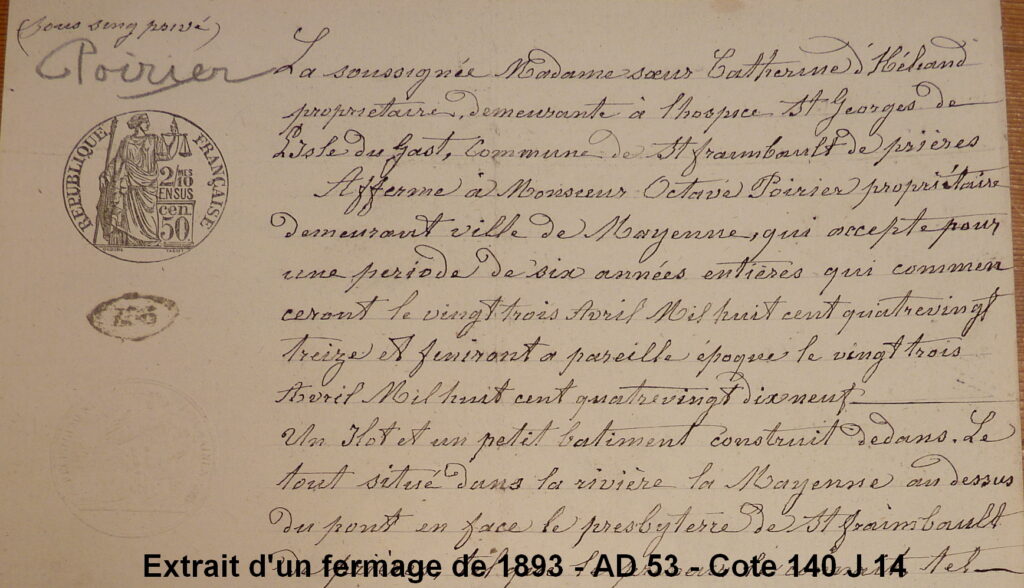 (sous seing privé)
Poirier
La soussignée Madame sœur Catherine d'Héliand
propriétaire, demeurante à l'hospice St Georges de
L'Isle du Gast, Commune de St fraimbault de prières
Afferme à Monsieur Octave Poirier propriétaire
demeurant ville de Mayenne, qui accepte pour
une periode de six années entières qui commen
ceront le vingt trois Avril Mil huit cent quatrevingt
treize et feniront a pareille époque le vingt trois
Avril Mil huit cent quatrevingt dix neuf
Un Ilot et un petit batiment construit dedans. Le
tout situé dans la rivière la Mayenne au dessus
du pont en face le presbyterre de St fraimbault
RÉPUBLIQUE FRANÇAISE
2 MES
10
EN SUS
cen.
50
Extrait d'un fermage de 1893 - AD 53 - Cote 140 J 14